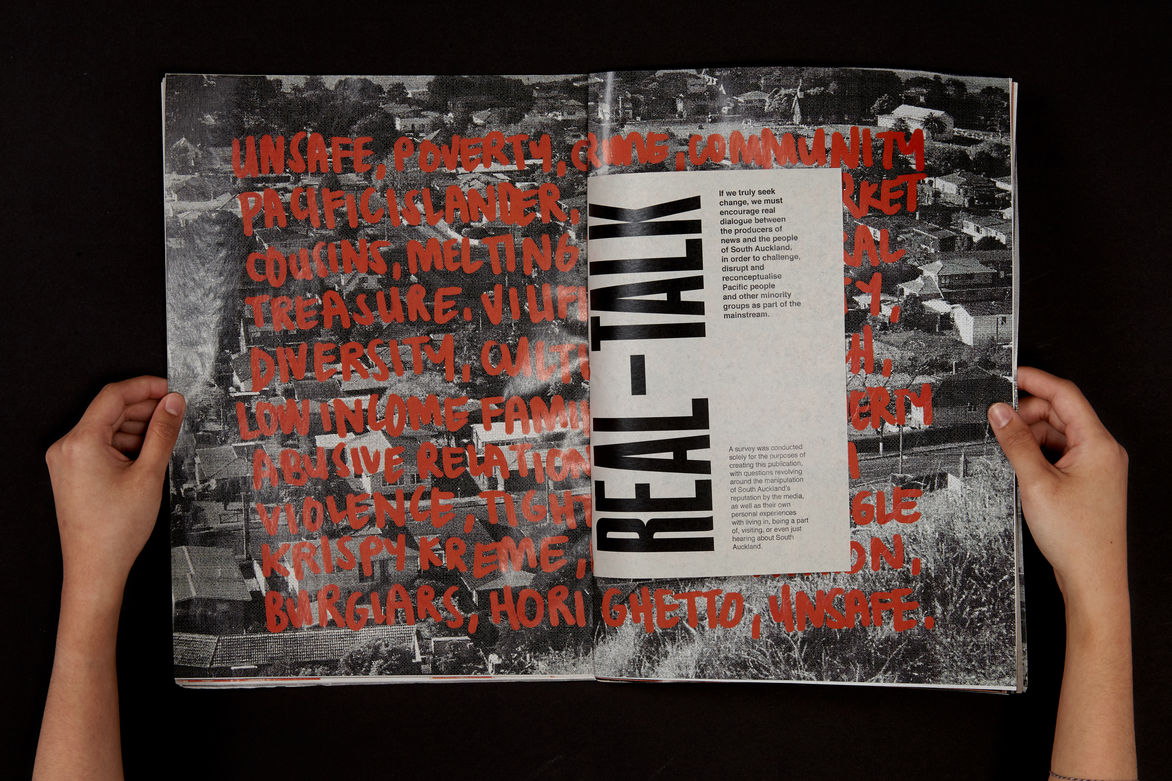 UNSAFE, POVERTY, CRIME, COMMUNITY
PACIFIC ISLANDER,
COUSINS, MELTING
TREASURE.
DIVERSITY,
LOW INCOME
ABUSIVE
VIOLENCE, TIGHT
KRISPY KREME,
BURGLARS, HORI GHETTO, UNSAFE.
REAL-TALK
If we truly seek
change, we must
encourage real
dialogue between
the producers of
news and the people
of South Auckland,
in order to challenge,
disrupt and
reconceptualise
Pacific people
and other minority
groups as part of the
mainstream.
A survey was conducted
solely for the purposes of
creating this publication,
with questions revolving
around the manipulation
of South Auckland's
reputation by the media,
as well as their own
personal experiences
with living in, being a part
of, visiting, or even just
hearing about South
Auckland.